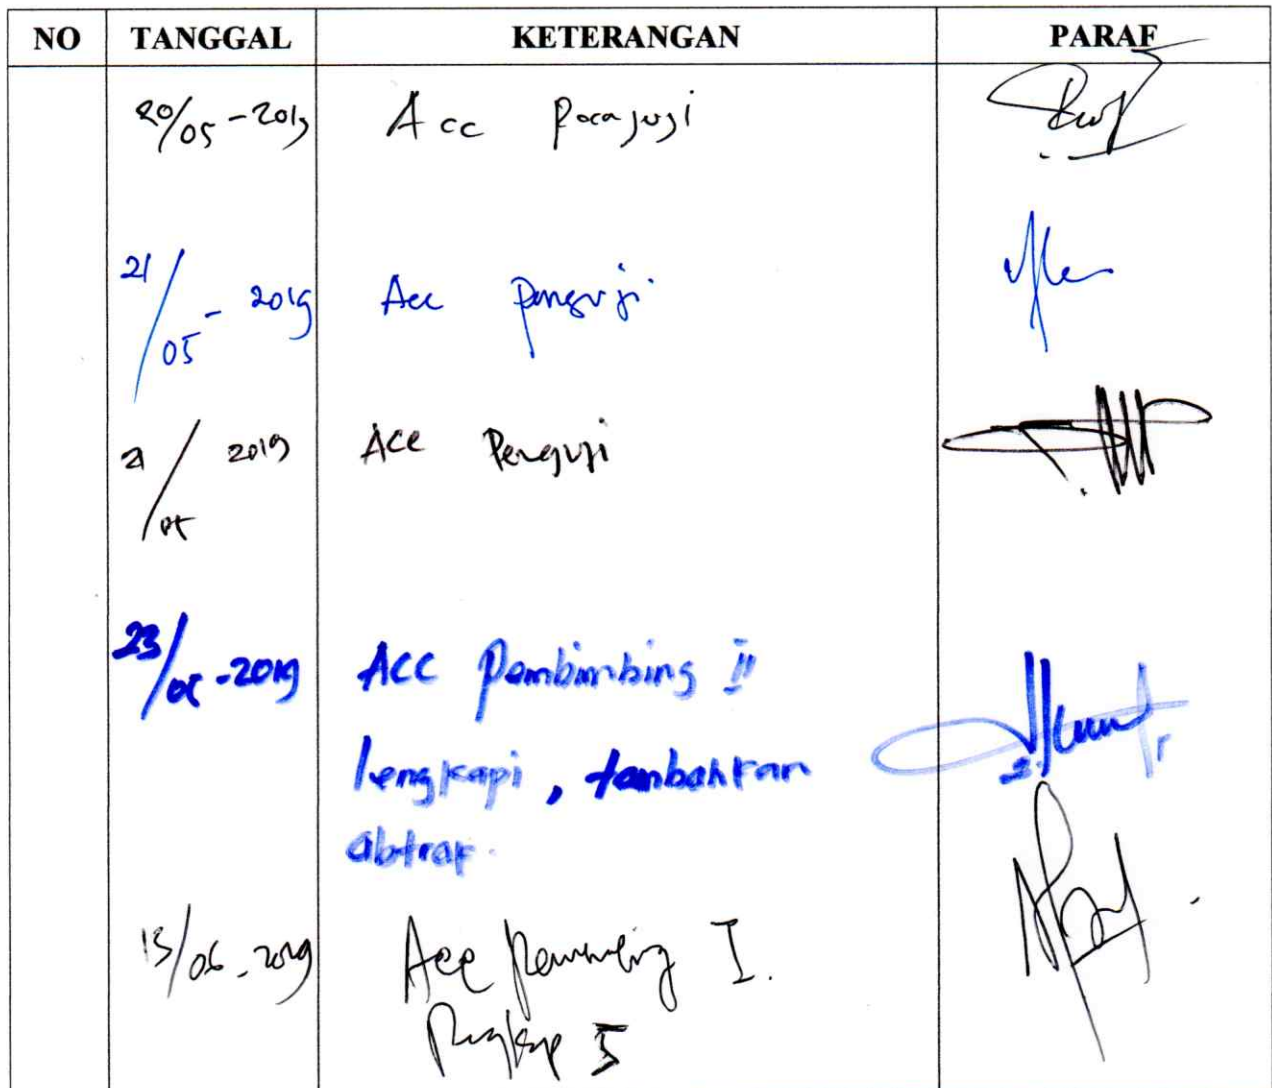 NO TANGGAL KETERANGAN PARAF
20/05-2019 Acc Penguji
21/05-2019 Acc Penguji
21/05 2019 Acc Penguji
23/05-2019 Acc Pembimbing II
lengkapi, tambahkan
abtrak.
13/06-2019 Acc Pembimbing I.
Rangkap 5